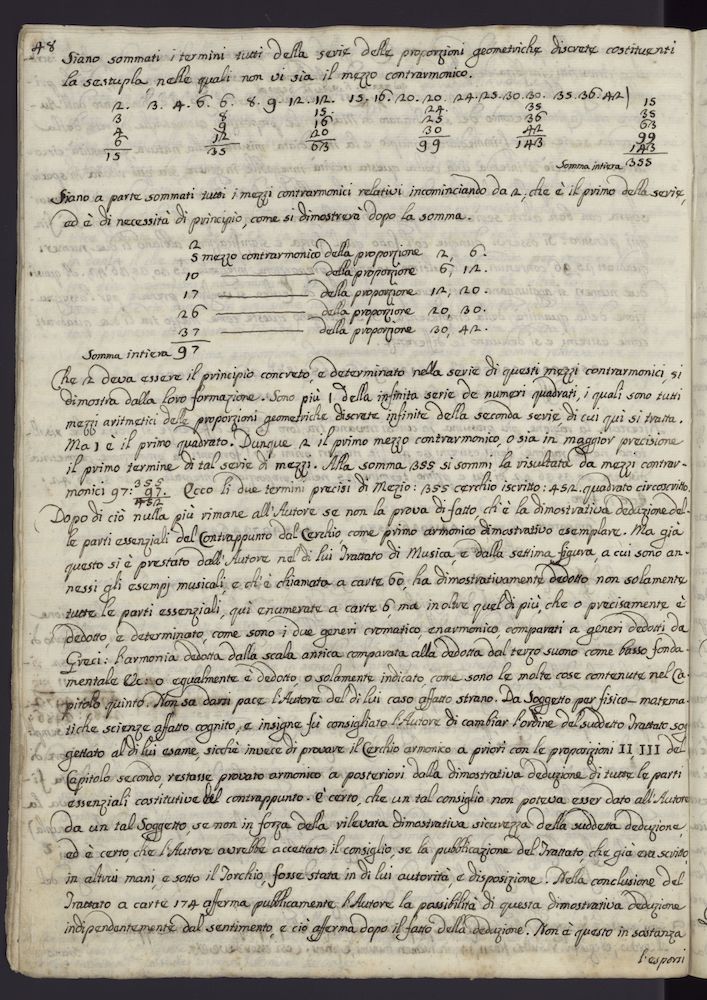 48
Siano sommati i termini tutti della serie delle proporzioni geometriche discrete costituenti
la sestupla nelle quali non vi sia il mezzo contrarmonico.
2. 3. 4. 6. 6. 8. 9. 12. 12. 15. 16. 20. 20. 24. 25. 30. 30. 35. 36. 42)
2 3 4 6 15
8 9 12 35
15 16 20 63
24 25 30 99
35 36 42 143
15
35
63
99
143
Somma intiera 355
Siano a parte sommati tutti i mezzi contrarmonici relativi incominciando da 2, che è il primo della serie,
ed è di necessità di principio, come si dimostrerà dopo la somma.
2
5 mezzo contrarmonico della proporzione 2, 6.
10 ——— della proporzione 6, 12.
17 ——— della proporzione 12, 20.
26 ——— della proporzione 20, 30.
37 ——— della proporzione 30, 42.
Somma intiera 97
Che 2 deva essere il principio concreto, e determinato nella serie di questi mezzi contrarmonici, si
dimostra dalla loro formazione. Sono più 1 della infinita serie de numeri quadrati, i quali sono tutti
mezzi aritmetici delle proporzioni geometriche discrete infinite della seconda serie di cui qui si tratta.
Ma 1 è il primo quadrato. Dunque 2 il primo mezzo contrarmonico, o sia in maggior precisione
il primo termine di tal serie di mezzi. Alla somma 355 si sommi la risultata da mezzi contrar-
monici 97: 355 97. 452 Ecco li due termini precisi di Mezio: 355 cerchio iscritto: 452. quadrato circoscritto.
Dopo di ciò nulla più rimane all'Autore se non la prova di fatto ch'è la dimostrativa deduzione del-
le parti essenziali del Contrappunto dal Cerchio come primo armonico dimostrativo esemplare. Ma già
questo si è prestato dall'Autore nel di lui Trattato di Musica, e dalla settima figura, a cui sono an-
nessi gli esempj musicali, e ch'è chiamata a carte 60, ha dimostrativamente dedotto non solamente
tutte le parti essenziali, qui enumerate a carte 6, ma inoltre quel di più, che o precisamente è
dedotto, e determinato, come sono i due generi cromatico, enarmonico, comparati a generi dedotti da
Greci: l'armonia dedotta dalla scala antica comparata alla dedotta dal terzo suono come basso fonda-
mentale &c: o egualmente è dedotto o solamente indicato come sono le molte cose contenute nel Ca-
pitolo quinto. Non sa darsi pace l'Autore del di lui caso affatto strano. Da Soggetto per fisico-matema-
tiche scienze affatto cognito, e insigne fu consigliato l'Autore di cambiar l'ordine del suddetto Trattato sog
gettato al di lui esame, sicchè invece di provare il Cerchio armonico a priori con le proporzioni II III del
Capitolo secondo, restasse provato armonico a posteriori dalla dimostrativa deduzione di tutte le parti
essenziali costitutive del contrappunto. È certo, che un tal consiglio non poteva esser dato all'Autore
da un tal Soggetto, se non in forza della rilevata dimostrativa sicurezza della suddetta deduzione,
ed è certo che l'Autore avrebbe accettato il consiglio, se la pubblicazione del Trattato, che già era scritto
in altrui mani, e sotto il Torchio, fosse stata in di lui autorità e disposizione. Nella conclusione del
Trattato a carte 174 afferma pubblicamente l'Autore la possibilità di questa dimostrativa deduzione
indipendentemente dal sentimento, e ciò afferma dopo il fatto della deduzione. Non è questo in sostanza
l'esporsi